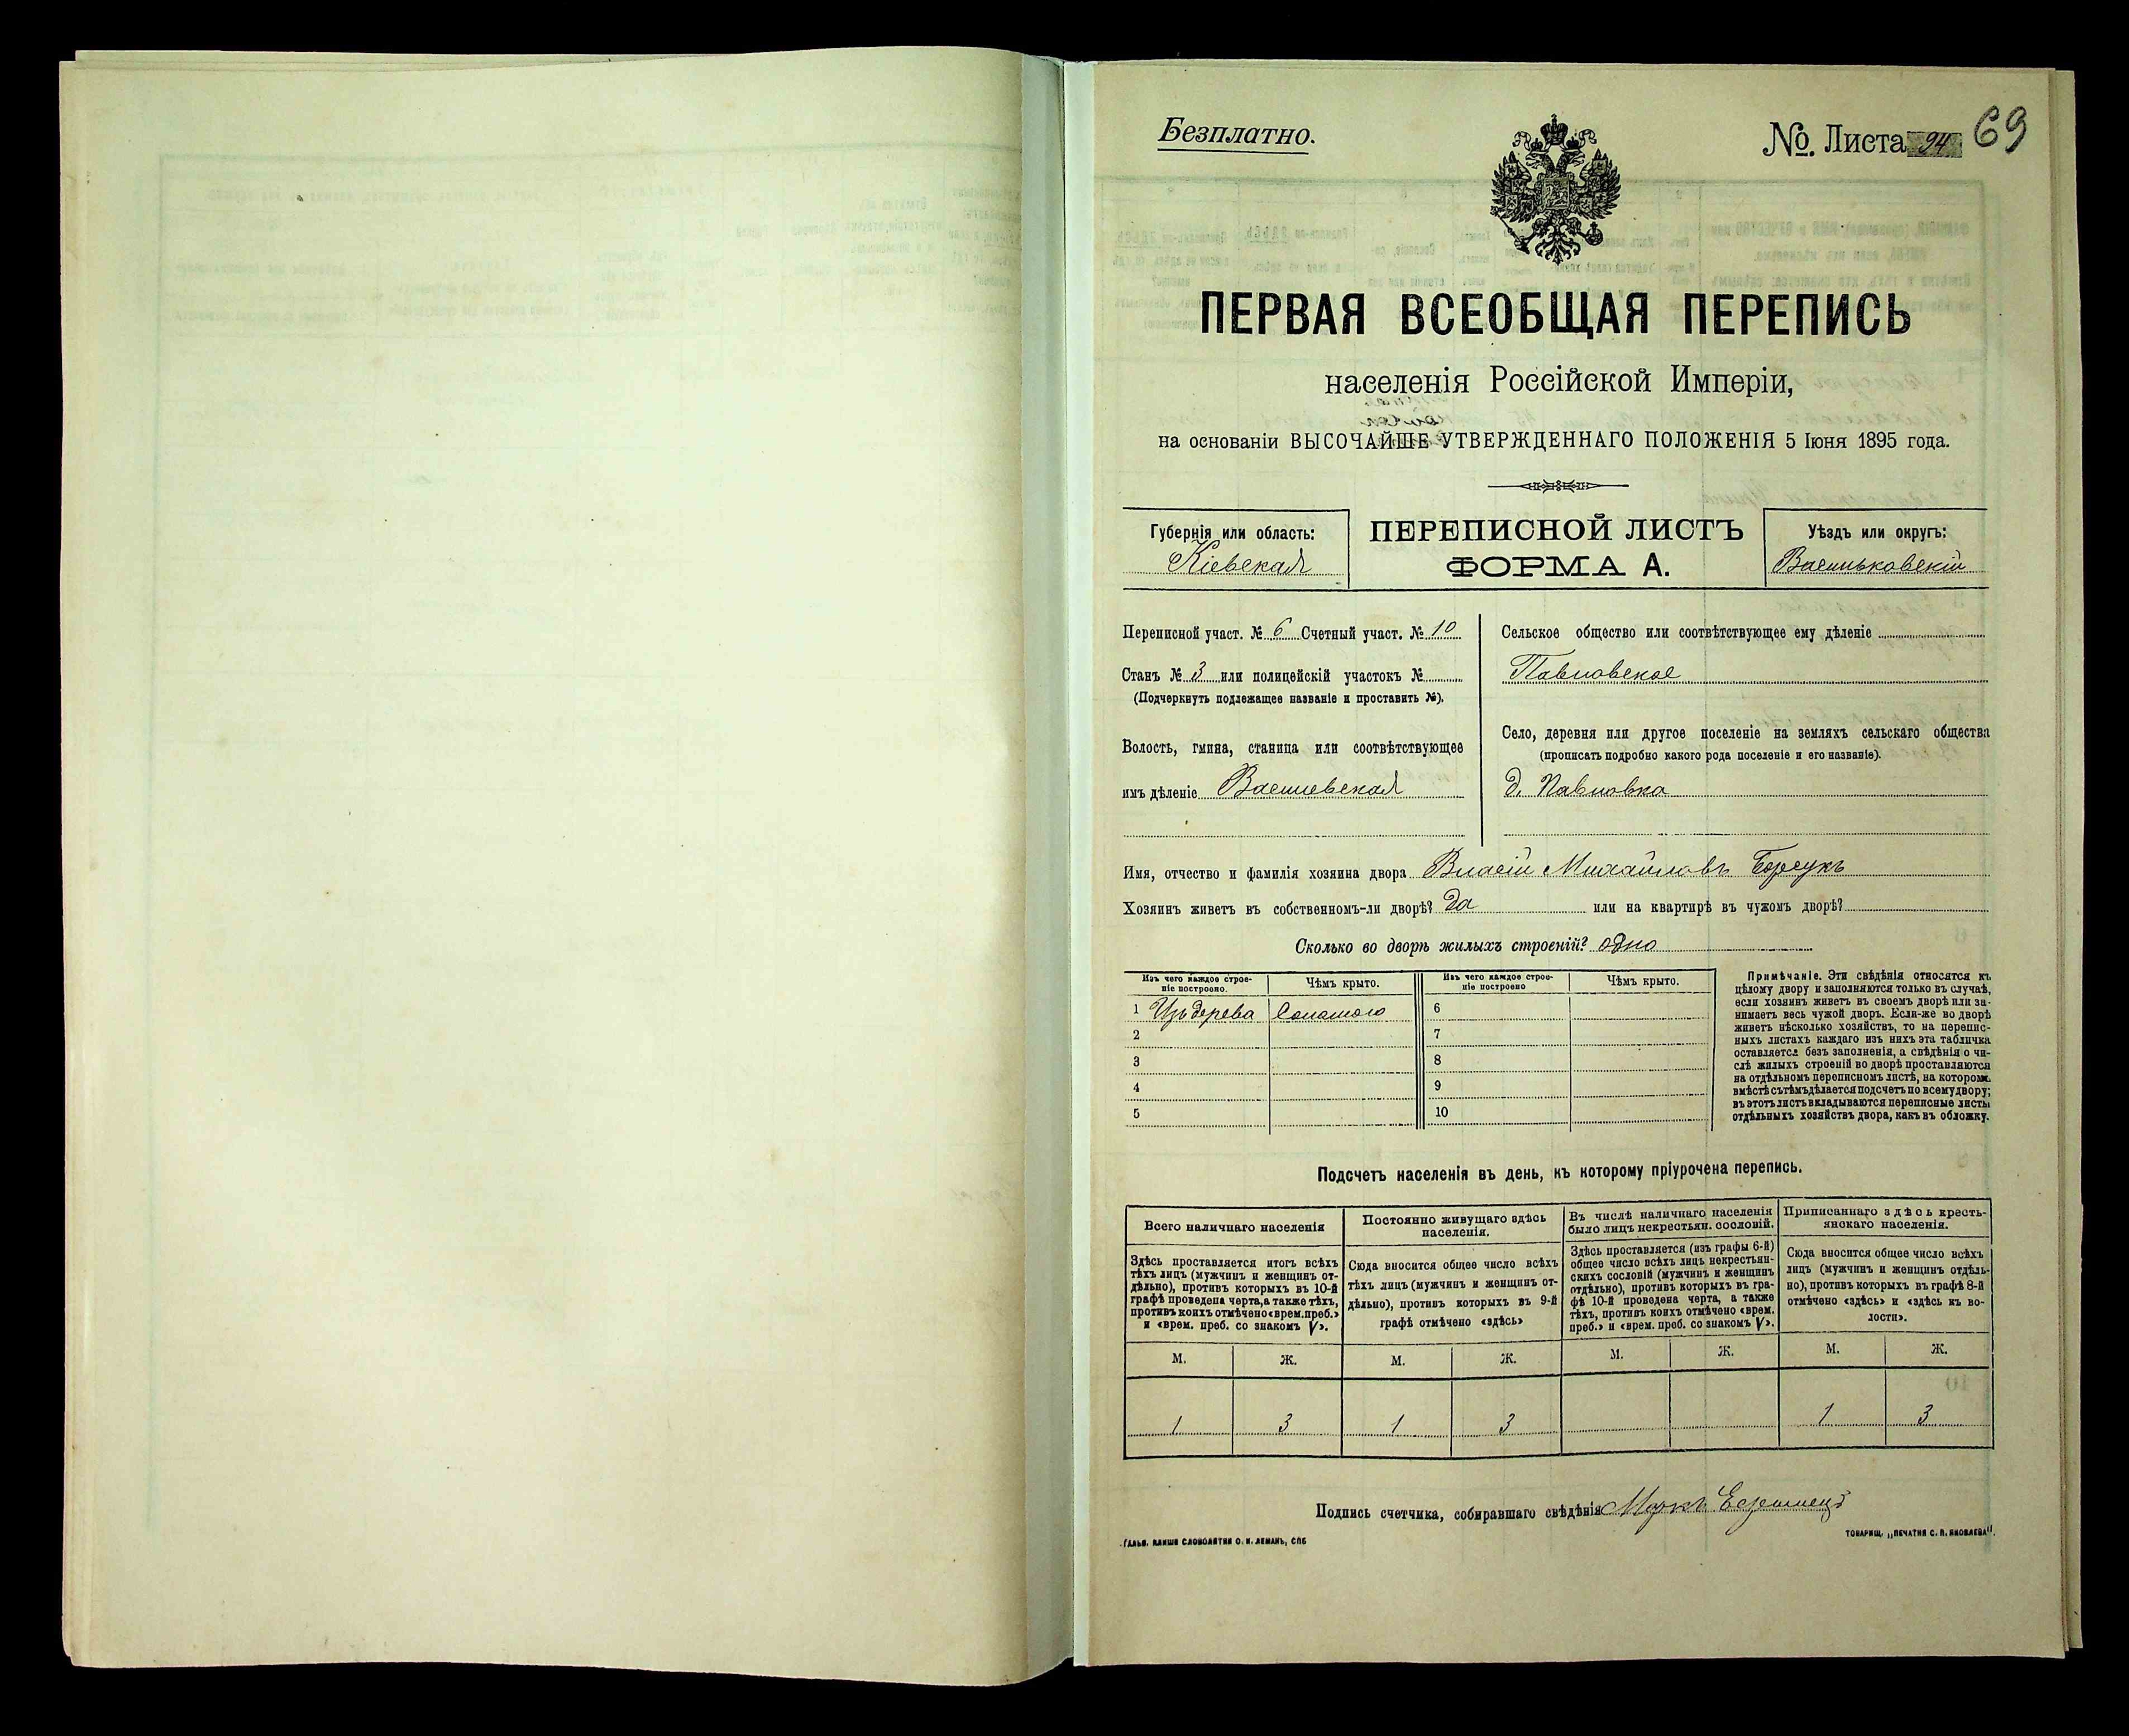 Безплатно.
№. Листа 94 69
ПЕРВАЯ ВСЕОБЩАЯ ПЕРЕПИСЬ
населенія Россійской Имперіи,
на основаніи ВЫСОЧАЙШЕ УТВЕРЖДЕННАГО ПОЛОЖЕНІЯ 5 Іюня 1895 года.
Губернія или область:
Кіевская
ПЕРЕПИСНОЙ ЛИСТЪ
ФОРМА А.
Уѣздъ или округъ:
Васильковскій
Переписной участ. № 6 Счетный участ. № 10
Станъ № 3 или полицейскій участокъ №
(Подчеркнуть подлежащее названіе и проставить №).
Волость, гмина, станица или соотвѣтствующее
имъ дѣленіе Васильевская
Сельское общество или соотвѣтствующее ему дѣленіе
Павловское
Село, деревня или другое поселеніе на земляхъ сельскаго общества
(прописать подробно какого рода поселеніе и его названіе).
д. Павловка
Имя, отчество и фамилія хозяина двора Власій Михайловъ Борсукъ
Хозяинъ живетъ въ собственномъ-ли дворѣ? да или на квартирѣ въ чужомъ дворѣ?
Сколько во дворѣ жилыхъ строеній? одно
Изъ чего каждое строе-
ніе построено.
Чѣмъ крыто.
Изъ чего каждое строе-
ніе построено
Чѣмъ крыто.
1 Изъ дерева Соломою 6
2 7
3 8
4 9
5 10
Примѣчаніе. Эти свѣдѣнія относятся къ
цѣлому двору и заполняются только въ случаѣ,
если хозяинъ живетъ въ своемъ дворѣ или за-
нимаетъ весь чужой дворъ. Если-же во дворѣ
живетъ нѣсколько хозяйствъ, то на перепис-
ныхъ листахъ каждаго изъ нихъ эта табличка
оставляется безъ заполненія, а свѣдѣнія о чи-
слѣ жилыхъ строеній во дворѣ проставляются
на отдѣльномъ переписномъ листѣ, на которомъ
вмѣстѣ съ тѣмъ дѣлается подсчетъ по всему двору;
въ этотъ листъ вкладываются переписные листы
отдѣльныхъ хозяйствъ двора, какъ въ обложку.
Подсчетъ населенія въ день, къ которому пріурочена перепись.
Всего наличнаго населенія
Здѣсь проставляется итогъ всѣхъ
тѣхъ лицъ (мужчинъ и женщинъ от-
дѣльно), противъ которыхъ въ 10-й
графѣ проведена черта, а также тѣхъ,
противъ коихъ отмѣчено «врем. преб.»
и «врем. преб. со знакомъ V».
Постоянно живущаго здѣсь
населенія.
Сюда вносится общее число всѣхъ
тѣхъ лицъ (мужчинъ и женщинъ от-
дѣльно), противъ которыхъ въ 9-й
графѣ отмѣчено «здѣсь»
Въ числѣ наличнаго населенія
было лицъ некрестьян. сословій.
Здѣсь проставляется (изъ графы 6-й)
общее число всѣхъ лицъ некрестьян-
скихъ сословій (мужчинъ и женщинъ
отдѣльно), противъ которыхъ въ гра-
фѣ 10-й проведена черта, а также
тѣхъ, противъ коихъ отмѣчено «врем.
преб.» и «врем. преб. со знакомъ V».
Приписаннаго здѣсь кресть-
янскаго населенія.
Сюда вносится общее число всѣхъ
лицъ (мужчинъ и женщинъ отдѣль-
но), противъ которыхъ въ графѣ 8-й
отмѣчено «здѣсь» и «здѣсь къ во-
лости».
М. Ж. М. Ж. М. Ж. М. Ж.
1 3 1 3 1 3
Подпись счетчика, собиравшаго свѣдѣнія Маркъ
ГАЛЬВ. КЛИШЕ СЛОВОЛИТНИ О. И. ЛЕМАНЪ, СПБ
ТОВАРИЩ. „ПЕЧАТНЯ С. П. ЯКОВЛЕВА".